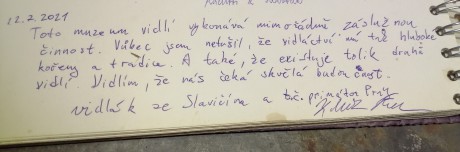 12.2.2021
Toto muzeum vidlí vykonává mimořádně záslužnou
činnost. Vůbec jsem netušil, že vidláctví má tak hluboké
kořeny a tradice. A také, že existuje tolik druhů
vidlí. Vidím, že nás čeká skvělá budoucnost.
vidlák ze Slavičína a t.č. primátor Prahy